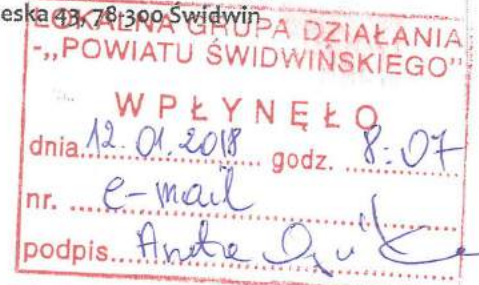 eska 43, 78-300 Świdwin
LOKALNA GRUPA DZIAŁANIA
-„POWIATU ŚWIDWIŃSKIEGO"
WPŁYNĘŁO
dnia 12.01.2018 godz. 8:07
nr. e-mail
podpis